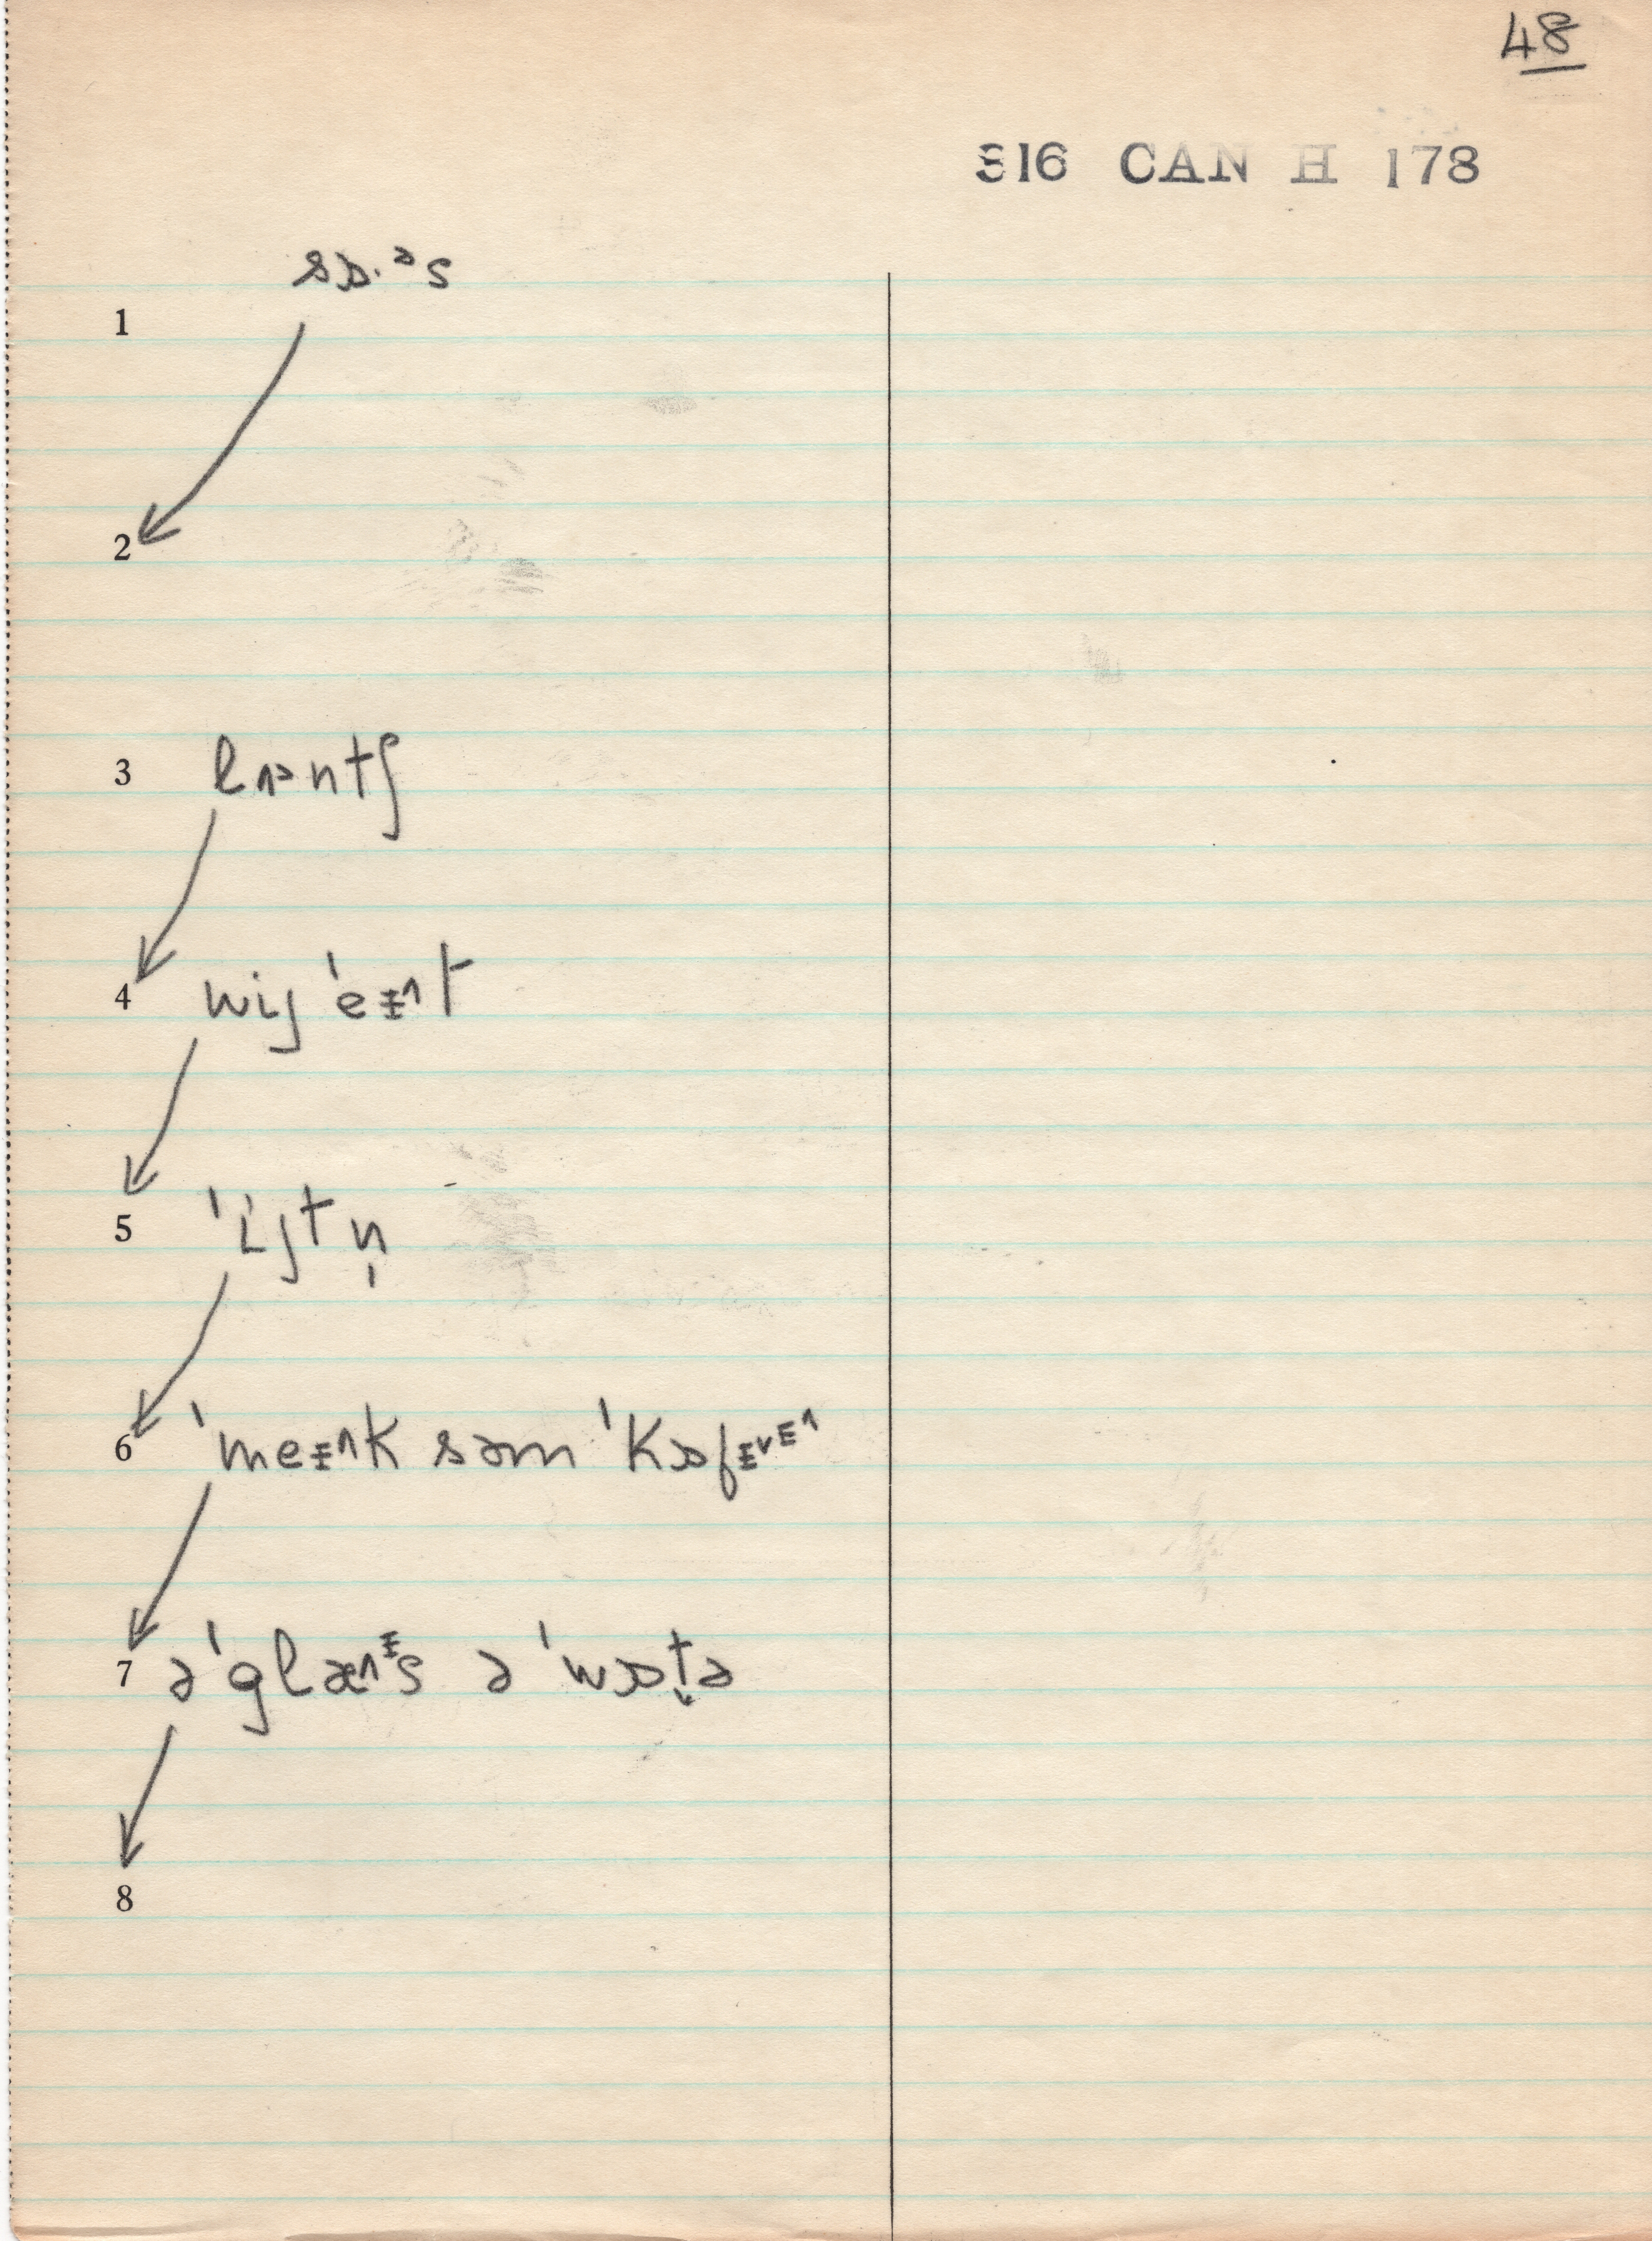 48
816 CAN H 178
sɒ.ᵊs
1
2
3 lʌ>ntʃ
4 wij ˈeɪ^t
5 ˈijtn̩
6 ˈmeɪ^k səm ˈkɔfɪᵛɪ^
7 əˈglæ^ɪs əˈwɔt̬ə
8